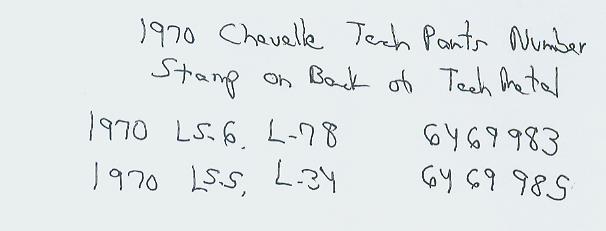 1970 Chevelle Tach Parts Number
Stamp on Back of Tach Metal
1970 LS-6, L-78 6469983
1970 LS-5, L-34 6469985